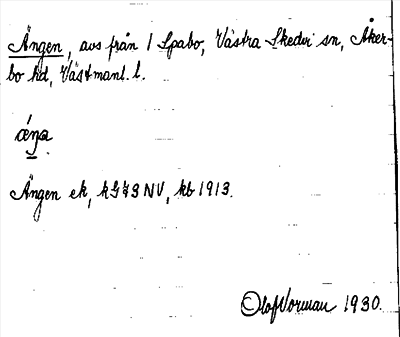 Ängen, avs från 1 Spabo, Västra Skedvi sn, Åker-
bo hd, Västmanl. l.
Ängen ek, kb 1913.
Olof Vorman 1930.